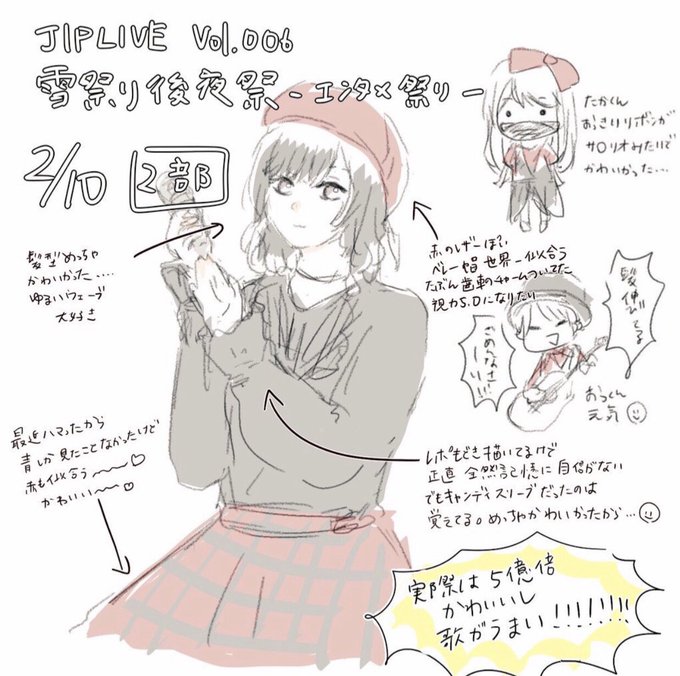 JIPLIVE Vol.006
雪祭り後夜祭 -エンタメ祭り-
2/10 2部
たかくん
おっきいリボンが
サロリオみたいで
かわいかった…
髪型めっちゃ
かわいかった….
ゆるいウェーブ
大好き
赤のレザーぽい
ベレー帽 世界一似合う
たぶん歯車のチャームついてた
視力5.0になりたい
髪伸びてる
ごめんなさーい!!
おっくん
元気
最近ハマったから
青しか見たことなかったけど
赤も似合う〜〜♡
かわいい〜♡
レポもどき描いてるけど
正直 全然記憶に自信がない
でもキャンディスリーブだったのは
覚えてる。めっちゃかわいかったから…
実際は5億倍
かわいいし
歌がうまい!!!!!!!